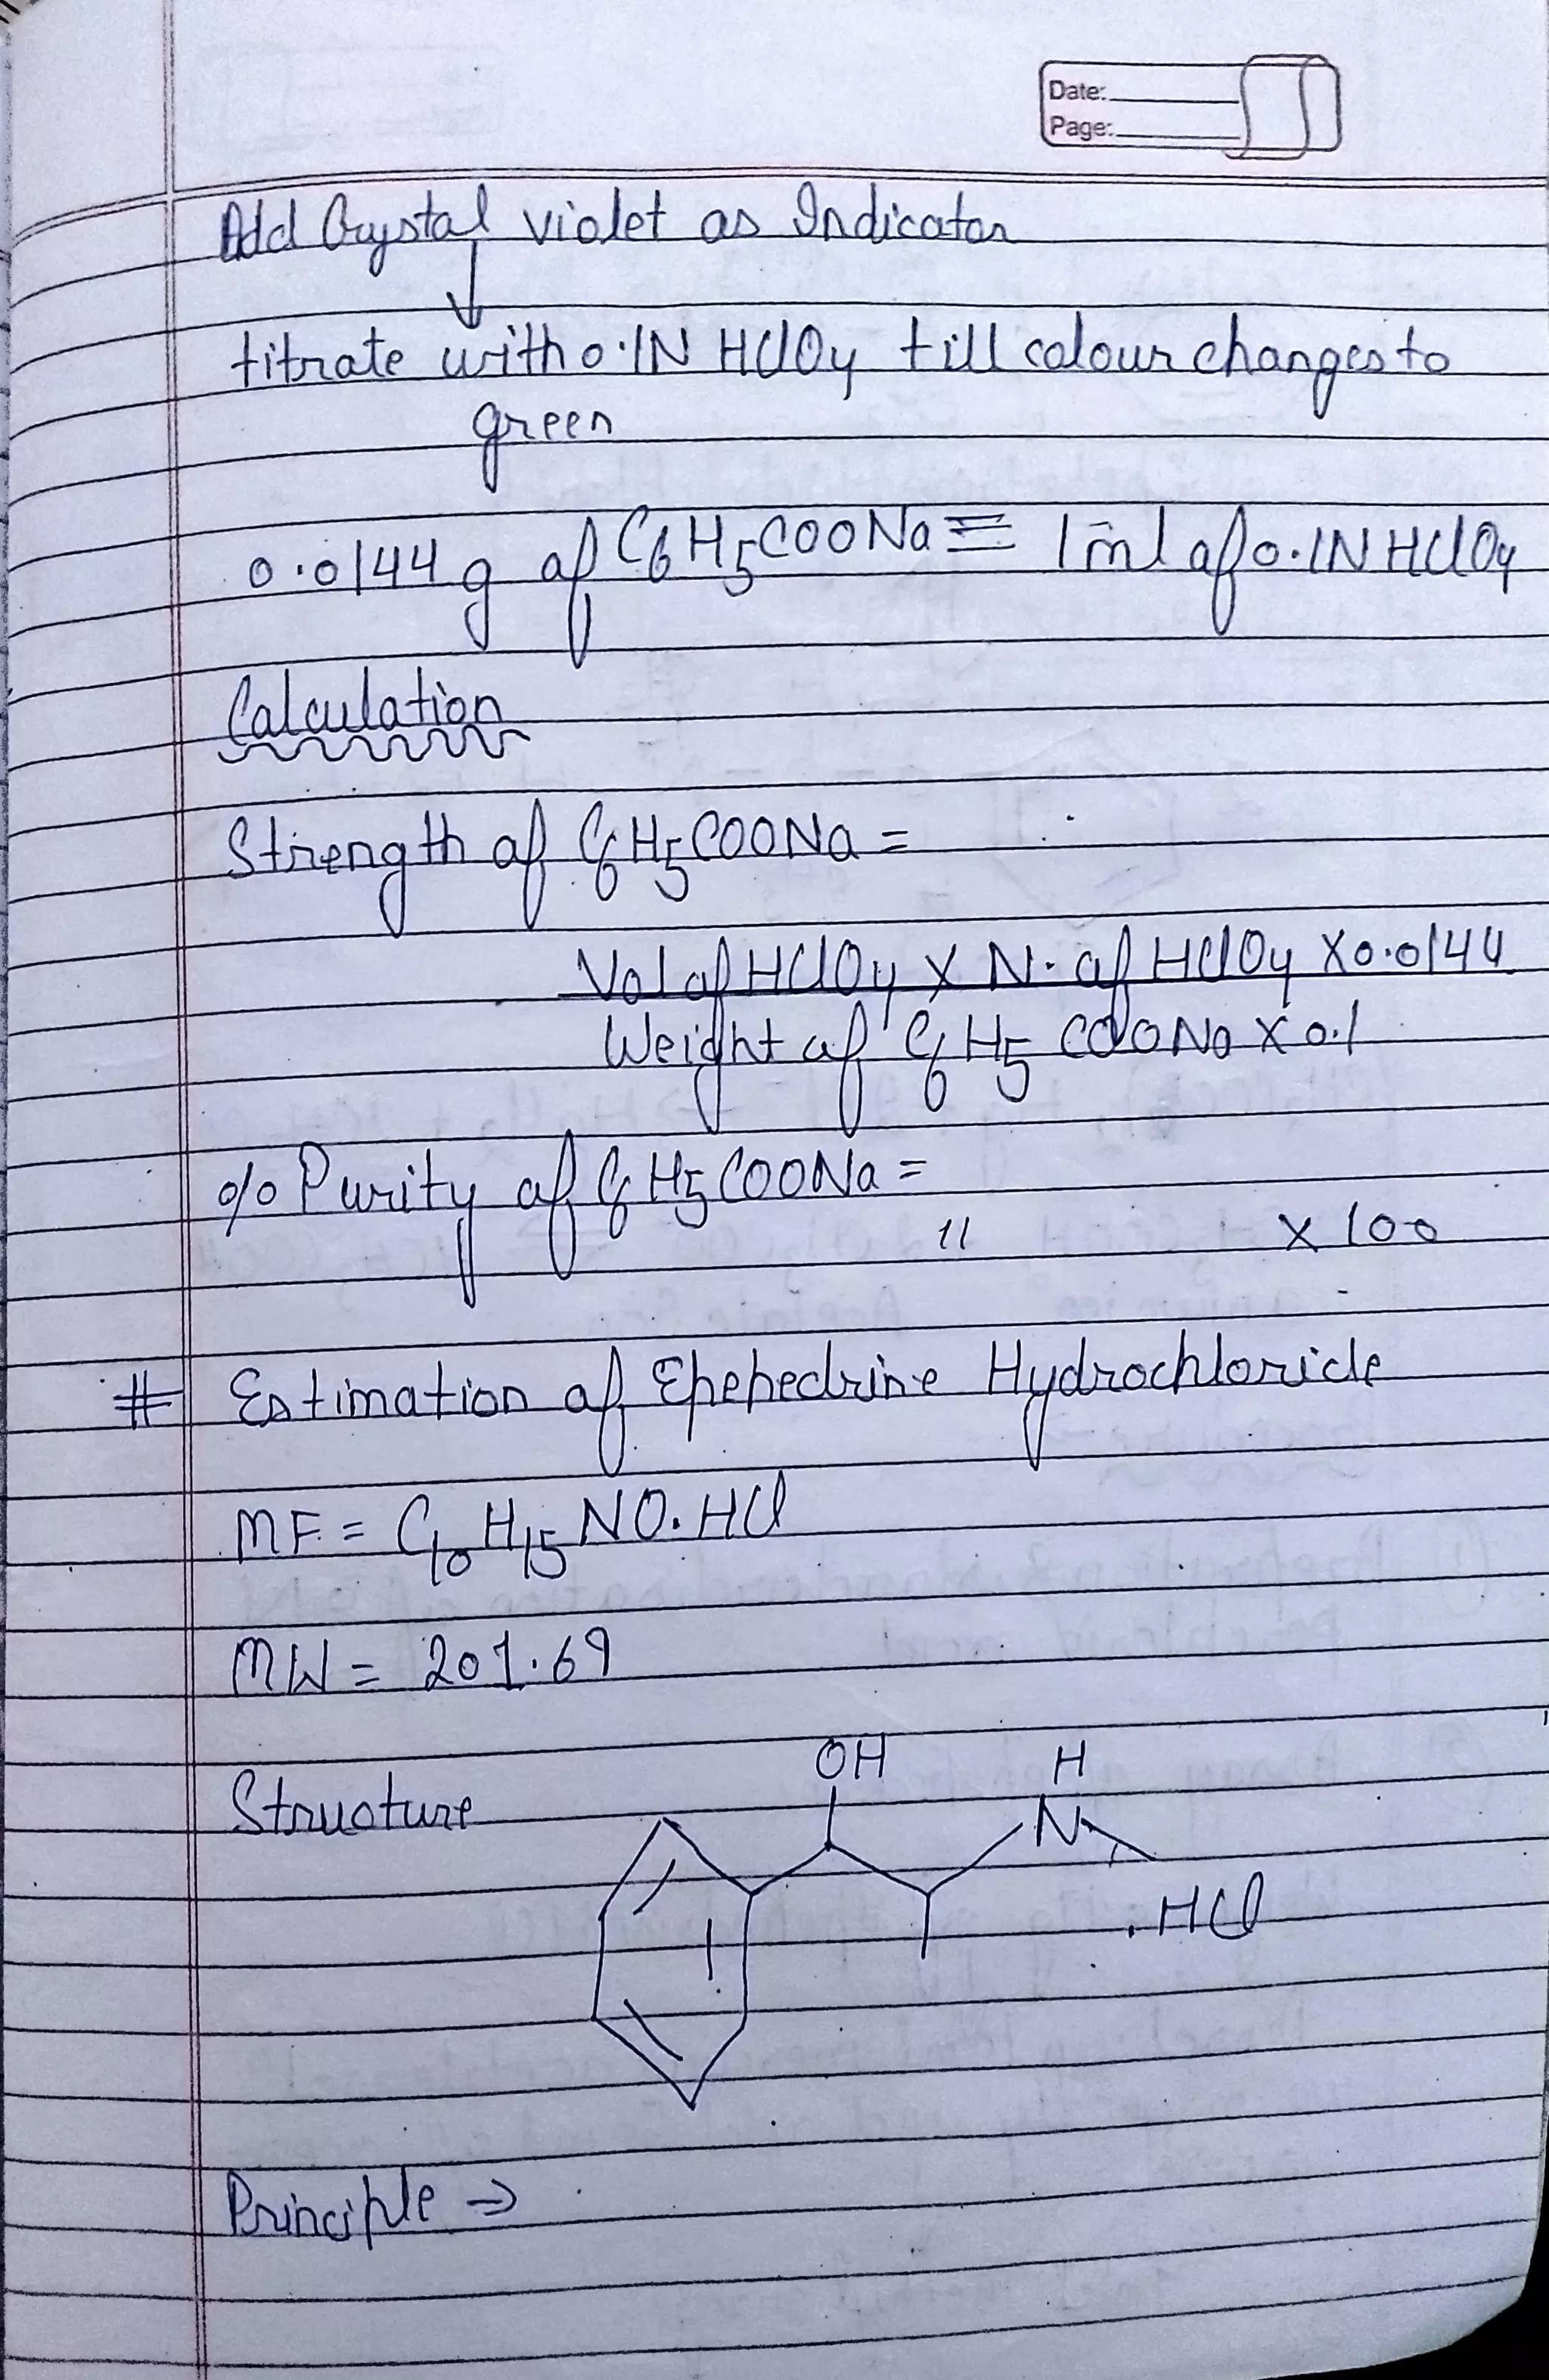 Date:
Page:
Add Crystal violet as Indicator
↓
titrate with 0.1N HClO4 till colour changes to
green
0.0144 g of C6H5COONa ≡ 1 ml of 0.1N HClO4
Calculation
Strength of C6H5COONa =
Vol of HClO4 X N. of HClO4 X 0.0144
Weight of C6H5COONa X 0.1
% Purity of C6H5COONa =
" X 100
# Estimation of Ephehedrine Hydrochloride
MF = C10H15NO.HCl
MW = 201.69
Structure
OH H
N
.HCl
Principle ⇒